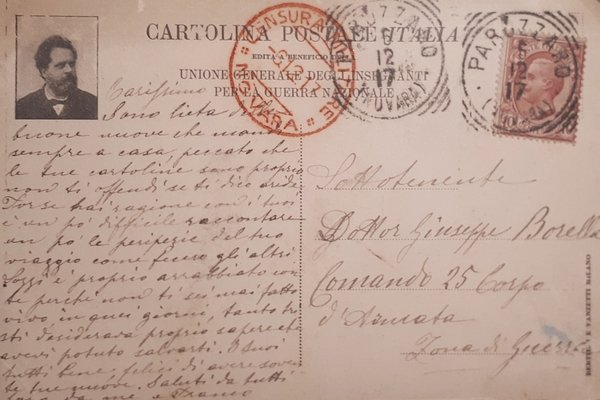 CARTOLINA POSTALE ITALIA
EDITA A BENEFICIO DELL'
UNIONE GENERALE DEGL'INSEGNANTI
PER LA GUERRA NAZIONALE
CENSURA MILITARE
NOVARA
PARUZZARO
6
12
17
(NOVARA)
PARUZZARO
6
12
17
(NOVARA)
Carissimo
Sono lieta di
buone nuove che mandi
sempre a casa, peccato che
le tue cartoline sono proprio
non ti offendi se ti dico aride
Forse hai ragione con i tuoi
è un po' difficile raccontare
un po' le peripezie del tuo
viaggio come fecero gli altri
Lozzi è proprio arrabbiato con
te perchè non ti sei mai fatto
vivo in quei giorni, tanto
sti desiderava proprio sapere che
avevi potuto salvarti. I tuoi
tutti bene, felici di avere soven
te tue nuove. Saluti da tutti
da me e Franco
Sottotenente
Dottor Giuseppe Borella
Comando 25 Corpo
d'Armata
Zona di Guerra
BERTOL E VANZETTI MILANO